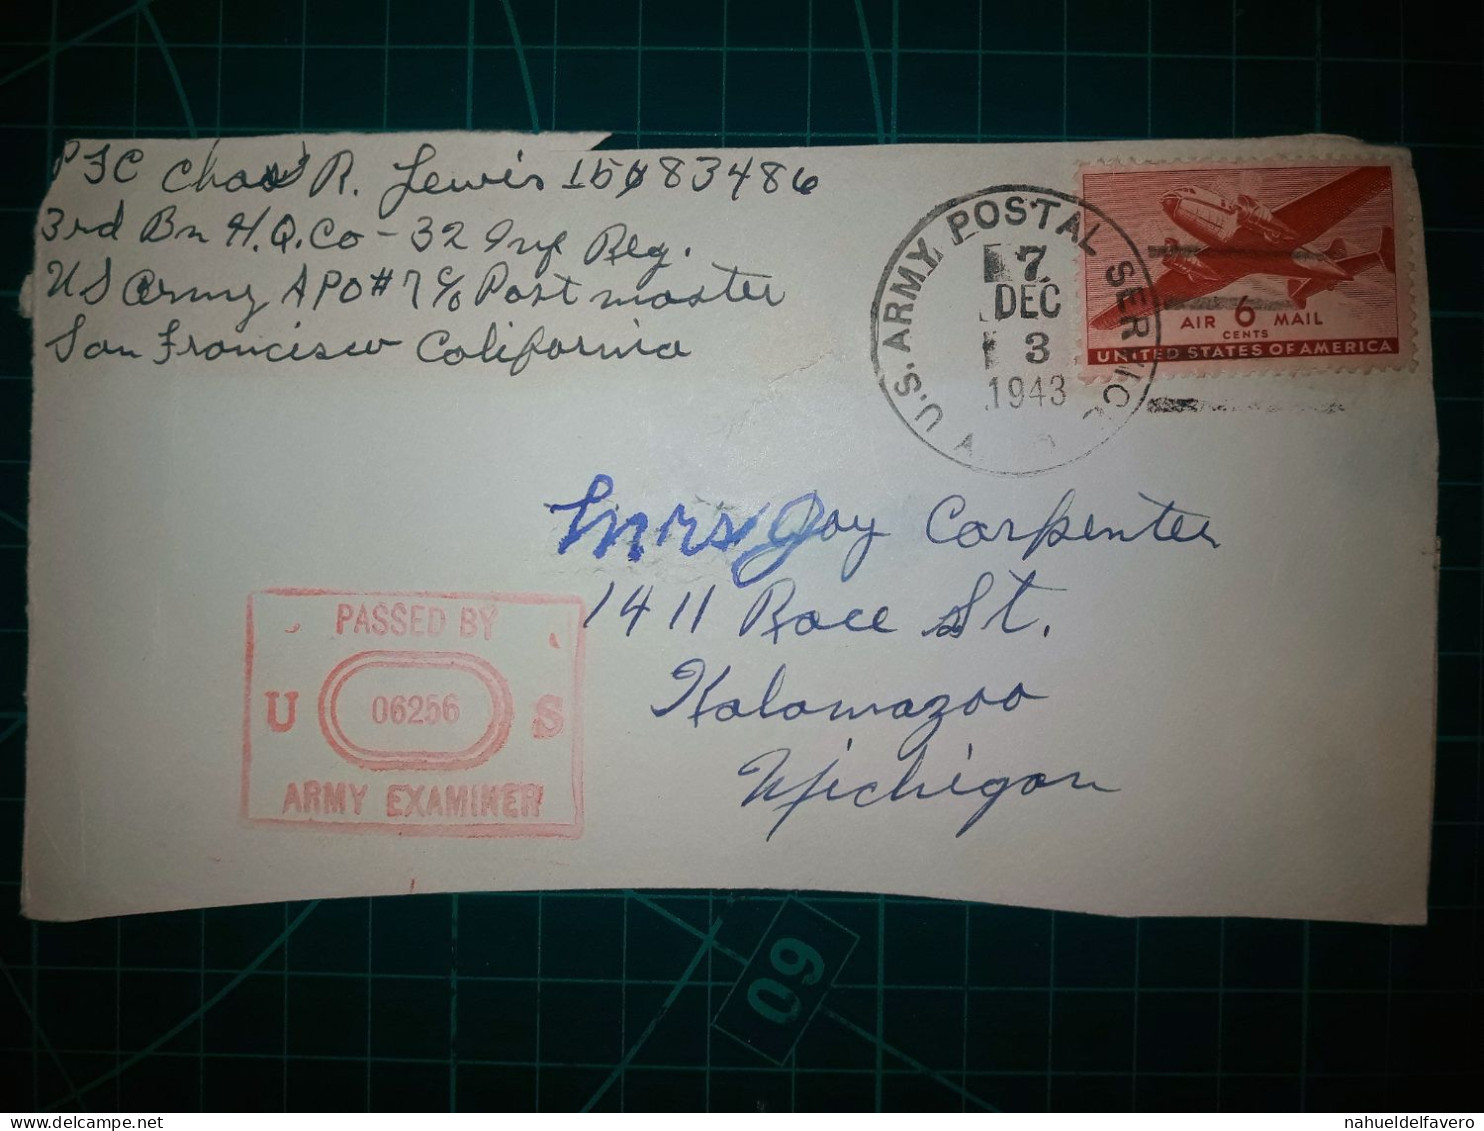 PFC Chas R. Lewis 15083486
3rd Bn H.Q. Co - 32 Inf Reg.
US Army APO #7 c/o Postmaster
San Francisco California
U.S. ARMY POSTAL SERVICE
7
DEC
3
1943
AIR 6 MAIL
CENTS
UNITED STATES OF AMERICA
Mrs Joy Carpenter
1411 Race St.
Kalamazoo
Michigan
PASSED BY
U 06256 S
ARMY EXAMINER
60
nahueldelfavero
delcampe.net